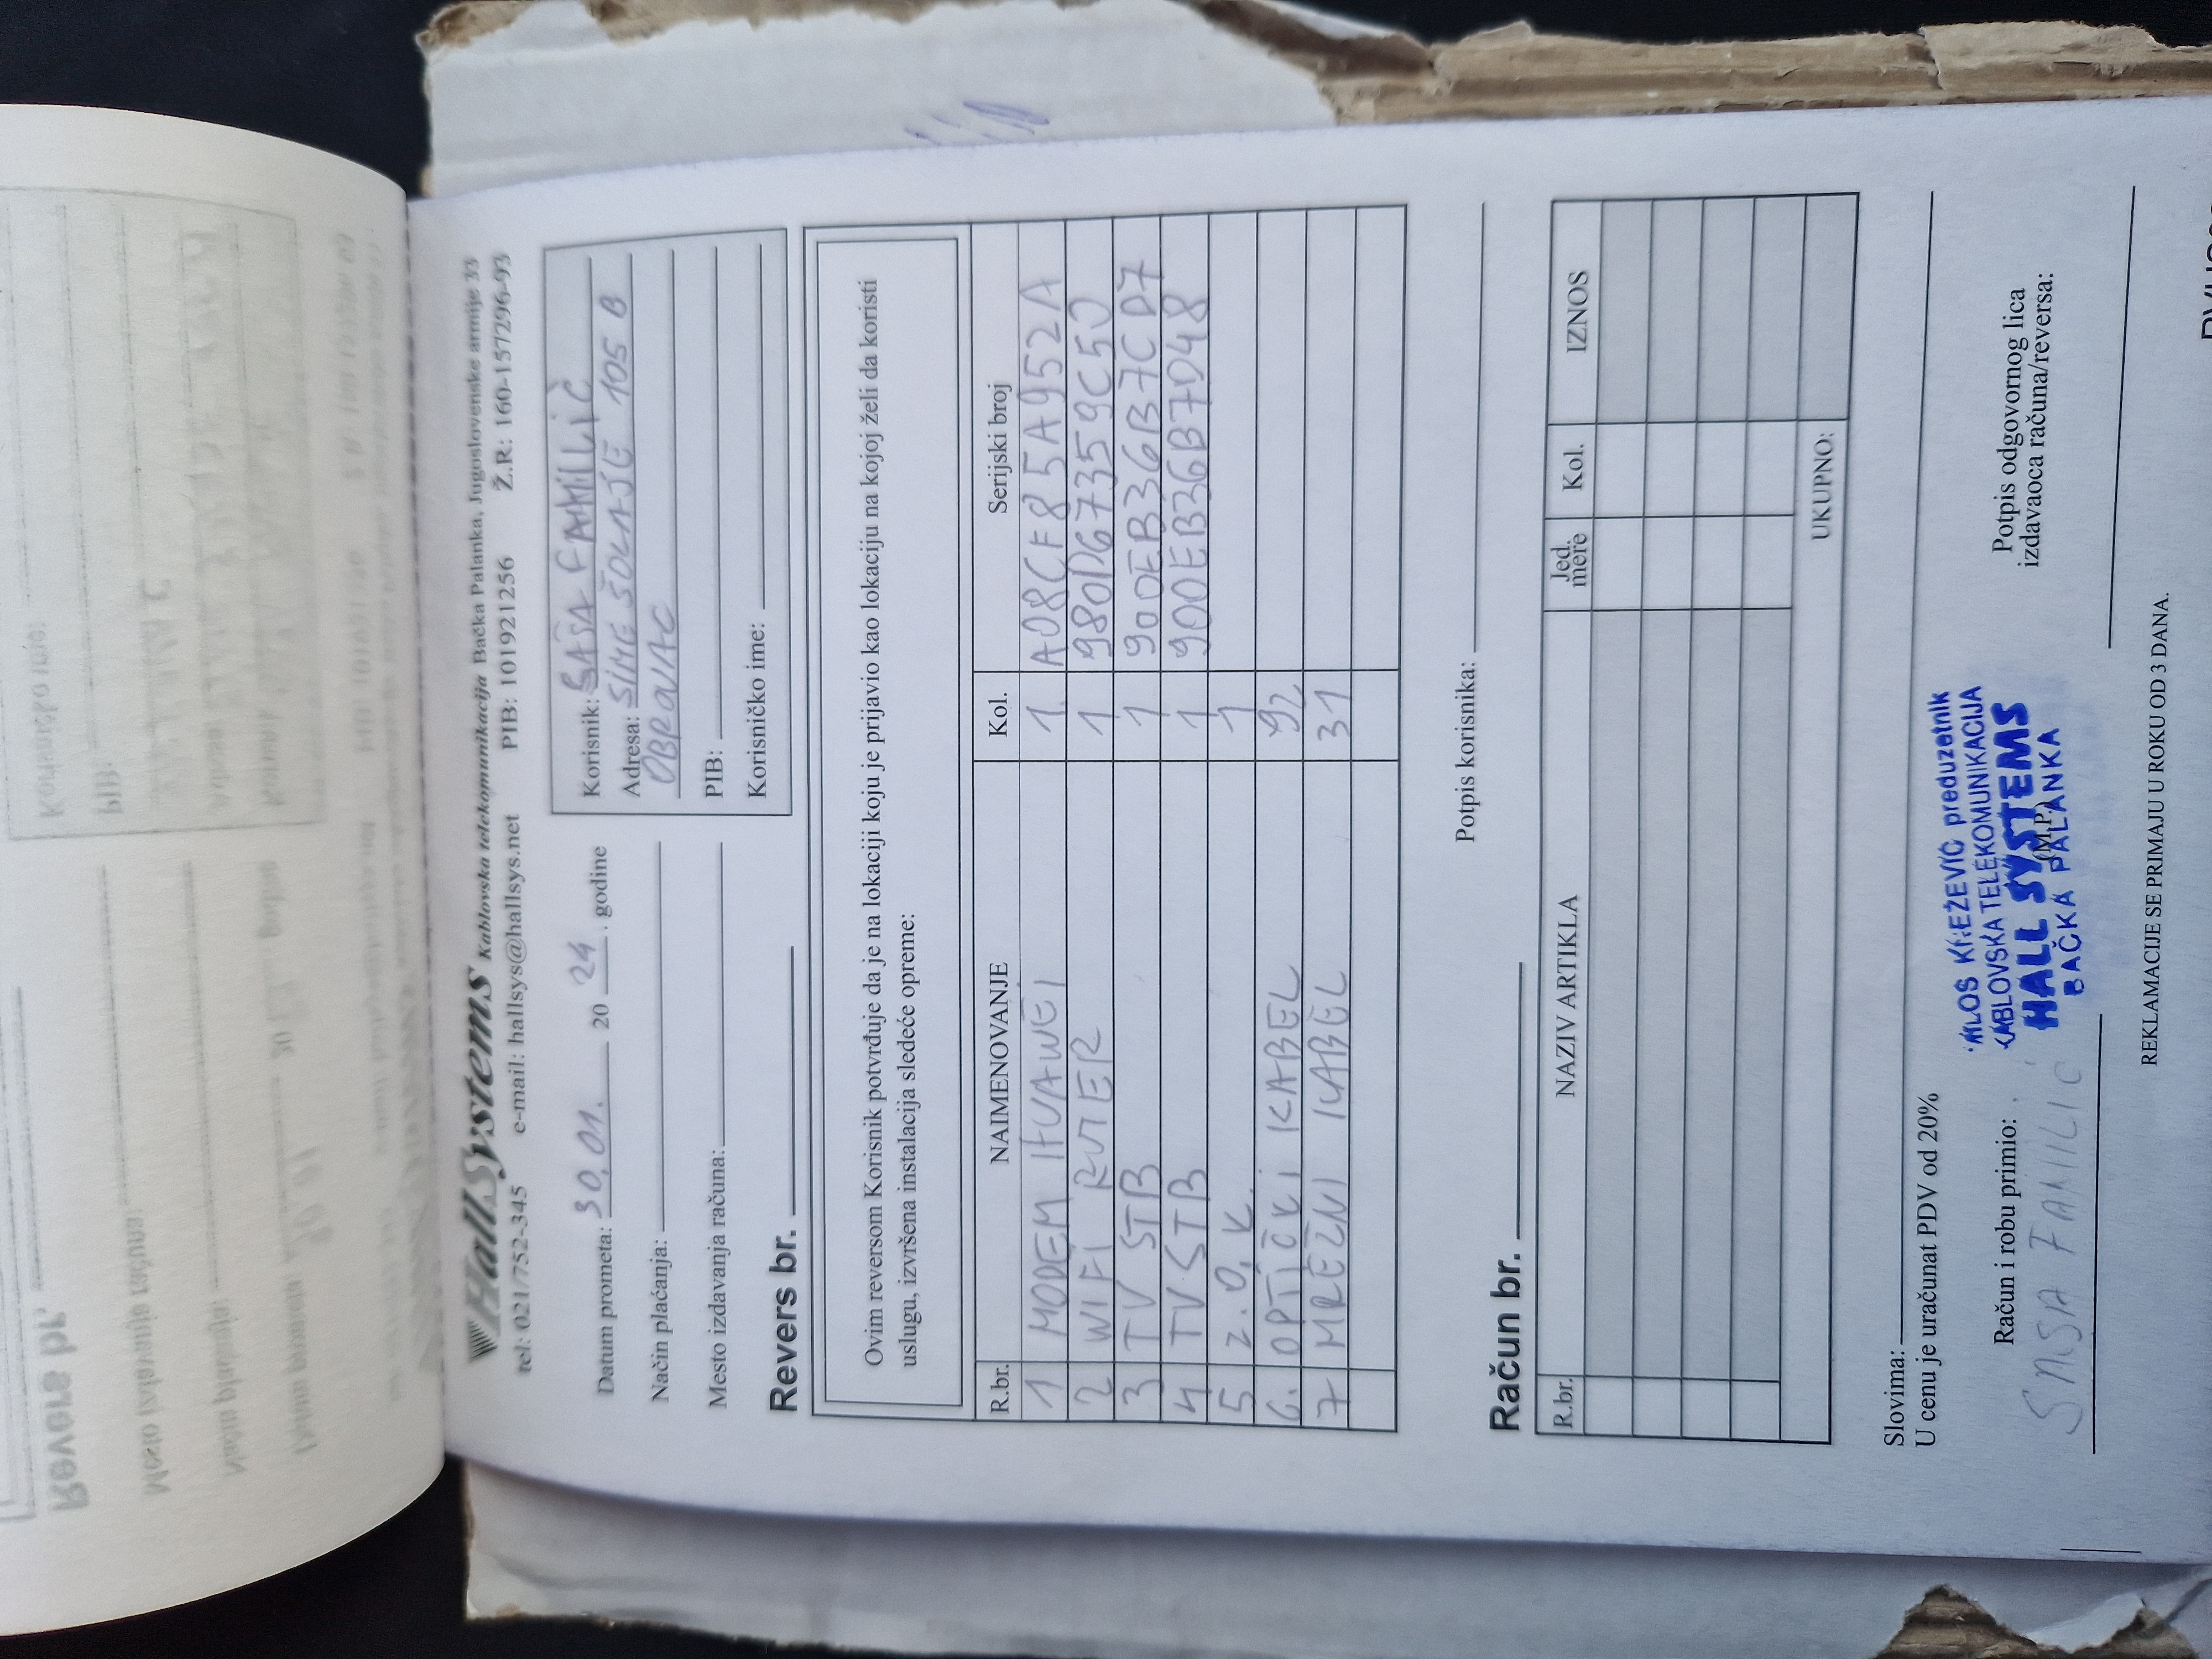 HallSystems Kablovska telekomunikacija Bačka Palanka, Jugoslovenske armije 33
tel: 021/752-345 e-mail: hallsys@hallsys.net PIB: 101921256 Ž.R: 160-157296-93
Datum prometa: 30.01. 20 24. godine
Način plaćanja:
Mesto izdavanja računa:
Korisnik: SAŠA FAMILIĆ
Adresa: SIME ŠOLAJE 105 B
OBROVAC
PIB:
Korisničko ime:
Revers br.
Ovim reversom Korisnik potvrđuje da je na lokaciji koju je prijavio kao lokaciju na kojoj želi da koristi
uslugu, izvršena instalacija sledeće opreme:
R.br. NAIMENOVANJE Kol. Serijski broj
1 MODEM HUAWEI 1. A08CF85A952A
2 WIFI RUTER 1 980D67359C50
3 TV STB 1 900EB36B7CD7
4 TV STB 1 900EB36B7D48
5 Z.O.K. 1
6. OPTIČKI KABEL 92
7 MREŽNI KABEL 31
Potpis korisnika:
Račun br.
R.br. NAZIV ARTIKLA Jed. mere Kol. IZNOS
UKUPNO:
Slovima:
U cenu je uračunat PDV od 20%
Račun i robu primio:
FAMILIĆ
KNEŽEVIĆ preduzetnik
KABLOVSKA TELEKOMUNIKACIJA
HALL SYSTEMS
BAČKA PALANKA
(M.P.)
Potpis odgovornog lica
izdavaoca računa/reversa:
REKLAMACIJE SE PRIMAJU U ROKU OD 3 DANA.